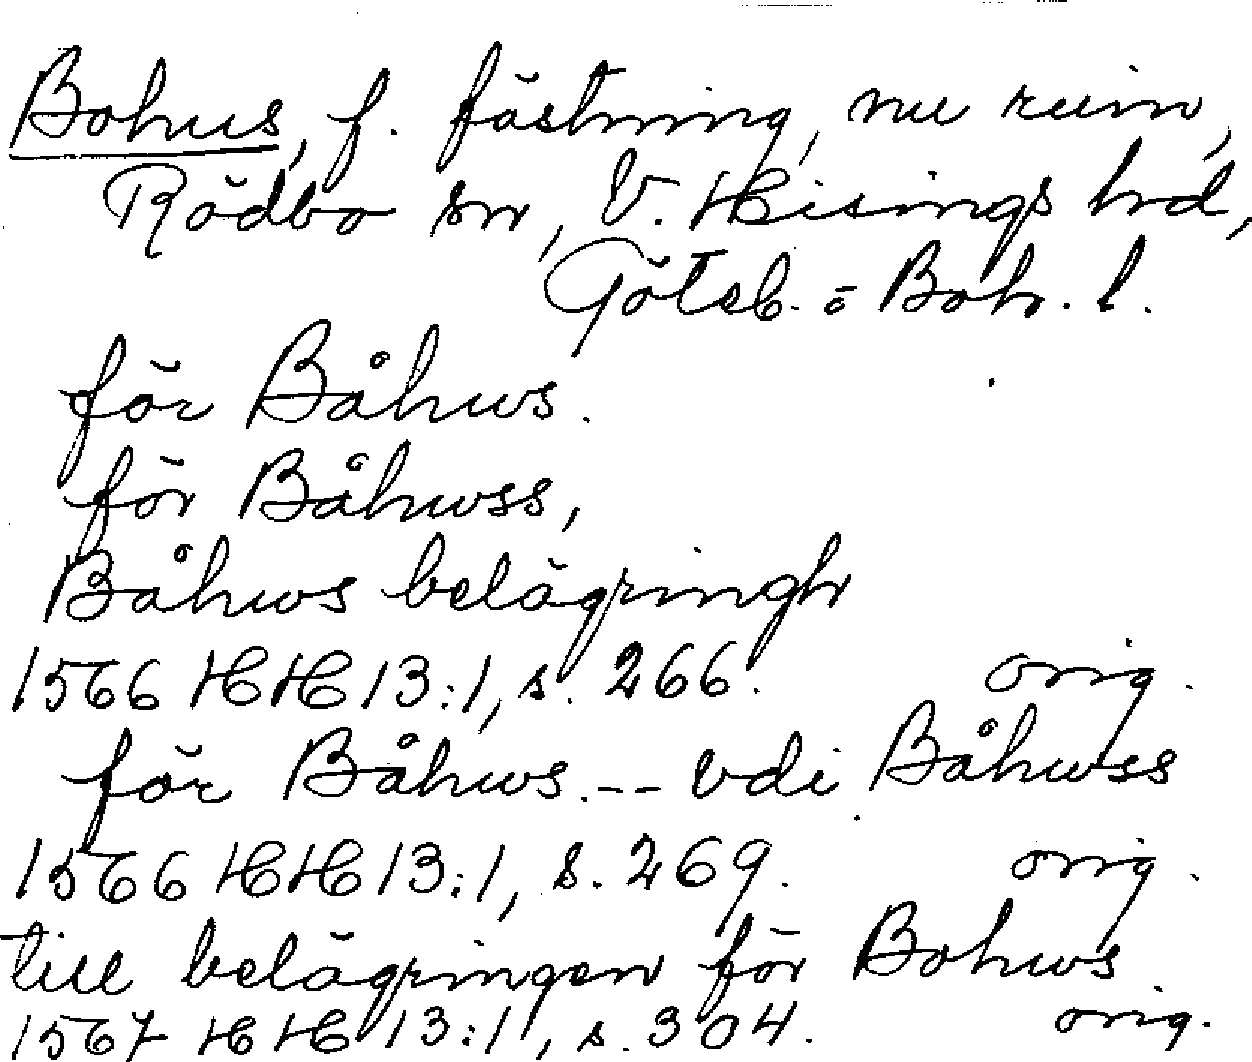 Bohus, f. fästning, nu ruin,
Rödbo sn, V. Hisings hrd,
Göteb. o Boh. l.
för Båhws.
för Båhwss,
Båhws belägringh
1566 HH 13:1, s. 266. orig.
för Båhws. -- vdi Båhwss
1566 HH 13:1, s. 269. orig.
till belägringen för Bohws
1567 HH 13:1, s. 304. orig.